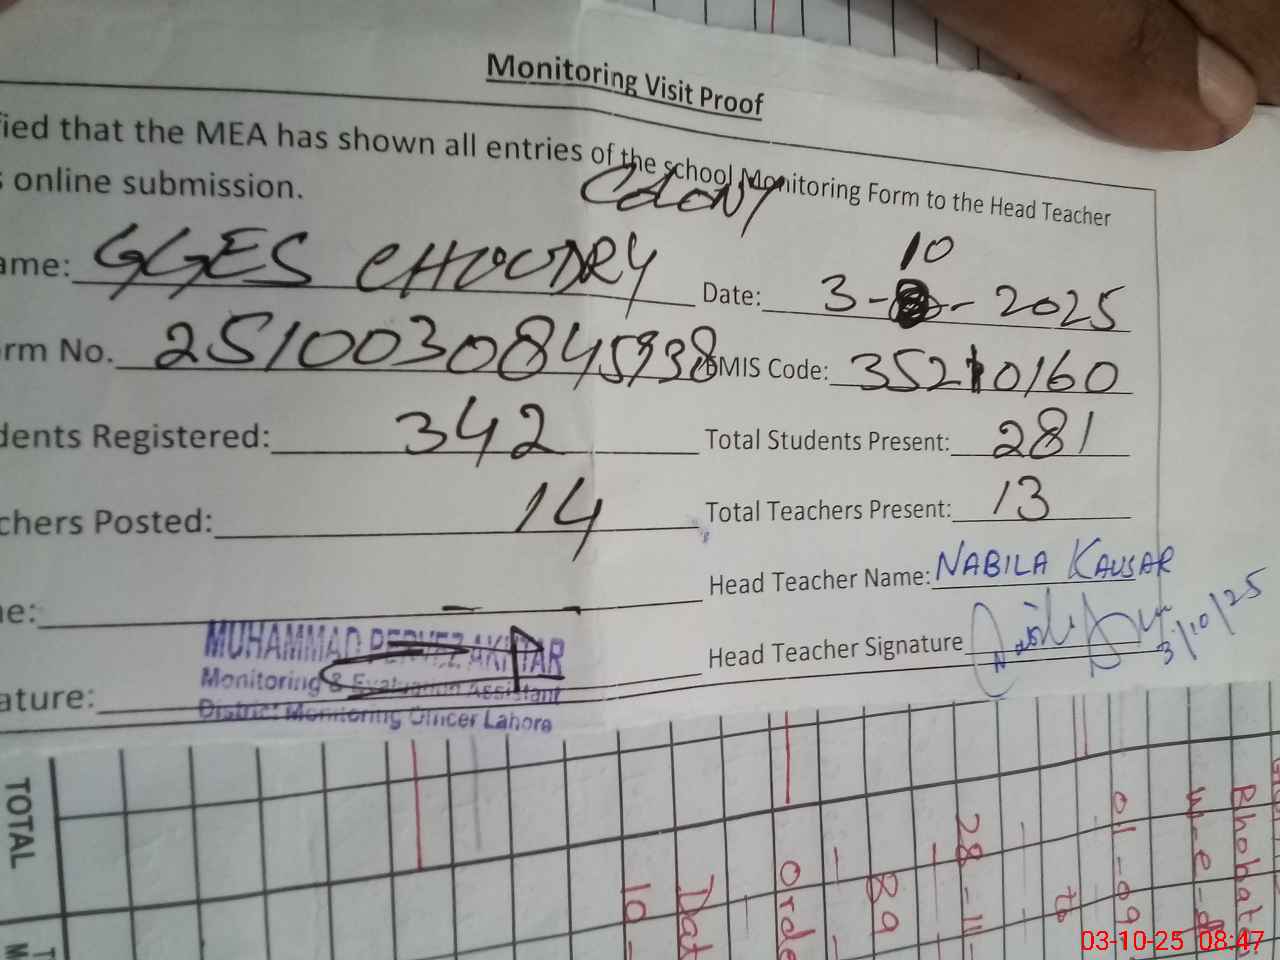 Monitoring Visit Proof
fied that the MEA has shown all entries of the school Monitoring Form to the Head Teacher
s online submission.
COLONY
ame: GGES CHOUDRY
10
Date: 3- - 2025
rm No. 2510030845938
MIS Code: 35210160
dents Registered: 342
Total Students Present: 281
chers Posted: 14
Total Teachers Present: 13
Head Teacher Name: NABILA KAUSAR
ne:
MUHAMMAD PERVEZ AKHTAR
Monitoring & Evaluation Assistant
District Monitoring Officer Lahore
ature:
Head Teacher Signature
3/10/25
TOTAL
10 -
Dat
orde
89
28-11-
to
01-09
W-e-
03-10-25 08:47